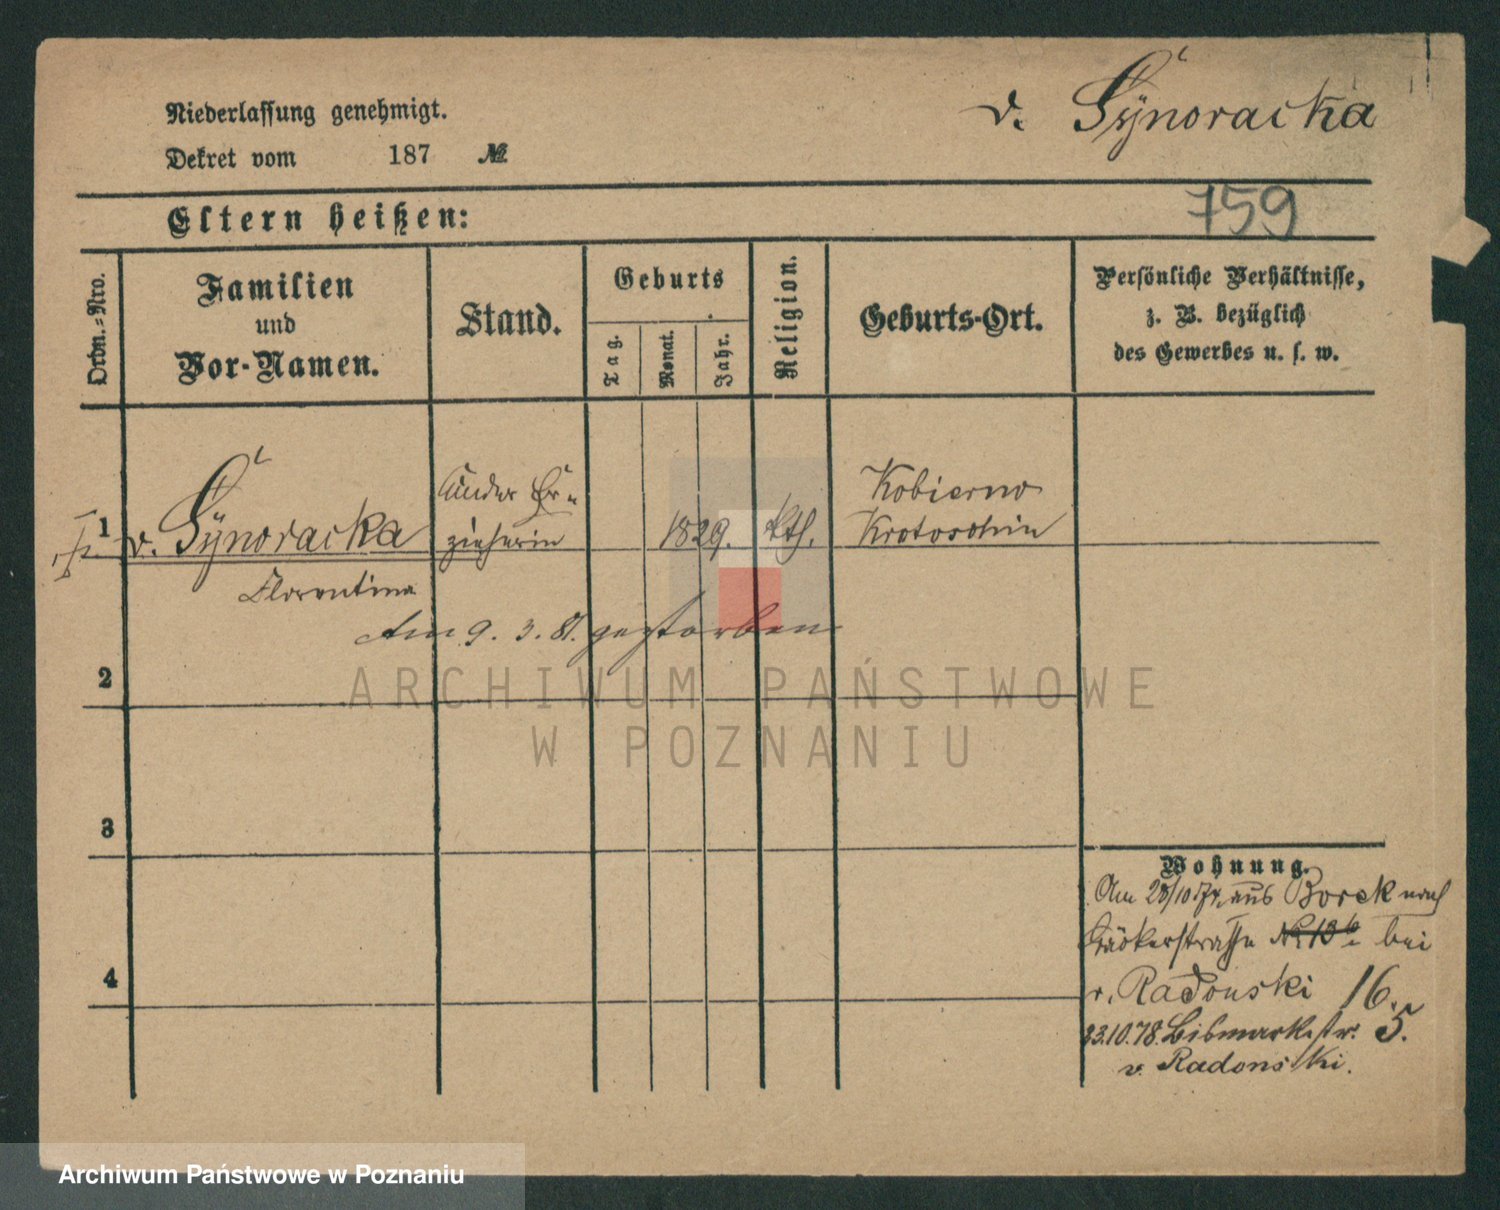 Niederlassung genehmigt.
Dekret vom 187 №
v. Synoracka
759
Eltern heißen:
Ordn.-Nro.
Familien
und
Vor-Namen.
Stand.
Geburts
Tag.
Monat.
Jahr.
Religion.
Geburts-Ort.
Persönliche Verhältnisse,
z. B. bezüglich
des Gewerbes u. s. w.
1 v. Synoracka
Florentina
Kinder Er-
zieherin
1829. kth.
Kobierno
Krotoschin
Am 9. 3. 81. gestorben
2
3
4
Wohnung.
Am 28/10 74 aus Borek nach
Bäckerstrasse No 13b bei
v. Radonski 16.
23.10.78. Bismarckstr. 5.
v. Radonski.
ARCHIWUM PAŃSTWOWE
W POZNANIU
Archiwum Państwowe w Poznaniu